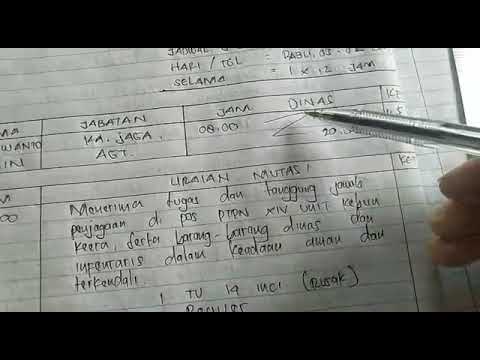 JADWAL
HARI / TGL = RABU, 03
SELAMA = 1 x 12 JAM
JABATAN JAM DINAS
WANTO KA. JAGA. 08.00 20.
IN AGT.
URAIAN MUTASI
00 Menerima tugas dan tanggung jawab
penjagaan di pos PTPN XIV UNIT Kebun
Keera, serta barang-barang dinas dan
inventaris dalam Keadaan aman dan
terkendali.
1 TV 14 INCI (RUSAK)